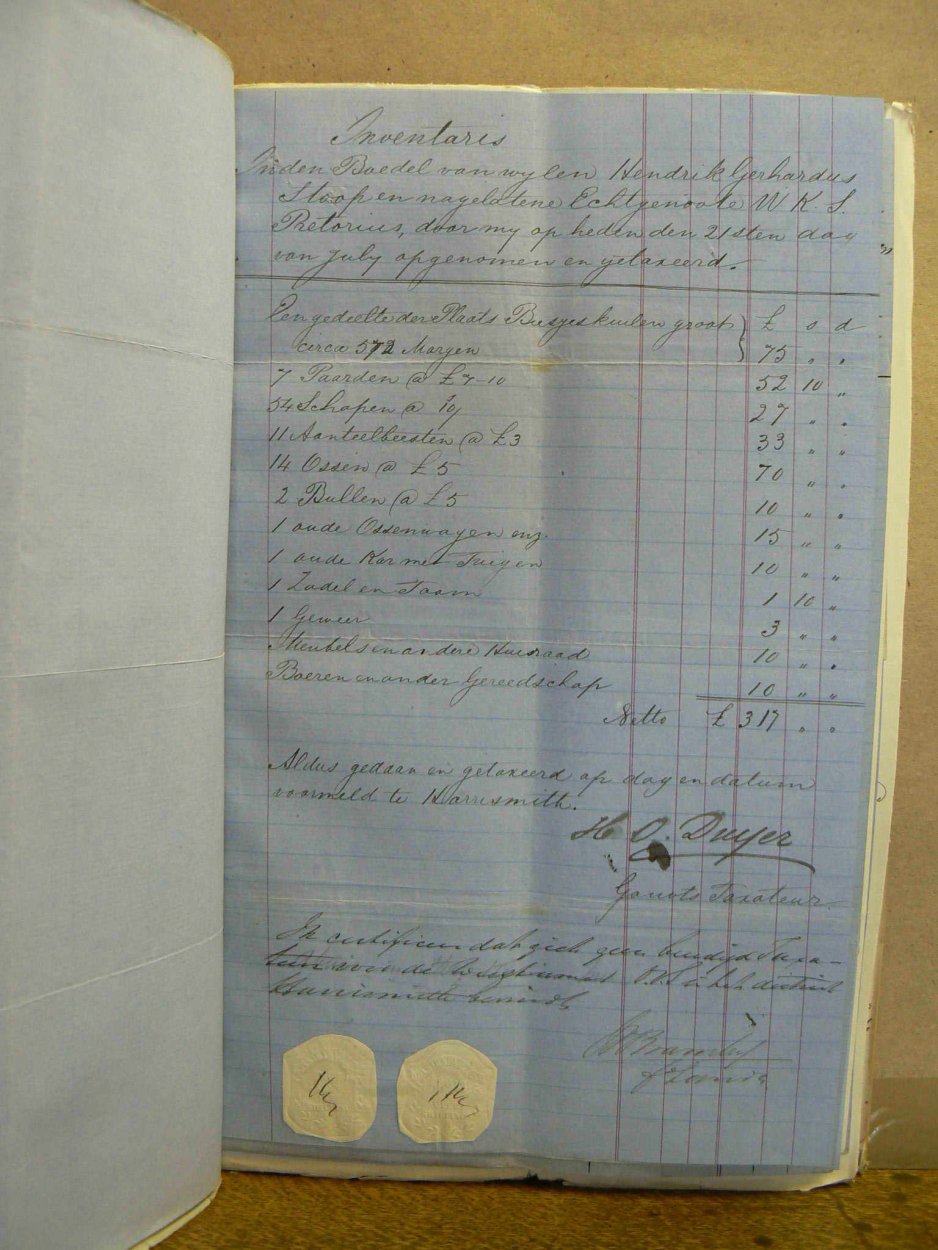 Inventaris
Inden Boedel van wylen Hendrik Gerhardus
Stoop en nagelatene Echtgenoote W K. S.
Pretorius, door my op heden den 21sten dag
van July opgenomen en getaxeerd.
Een gedeelte der Plaats Biesjeskuilen groot } £ s d
circa 572 Morgen 75 " "
7 Paarden @ £7-10 52 10 "
54 Schapen @ 10/ 27 " "
11 Aanteelbeesten @ £3 33 " "
14 Ossen @ £5 70 " "
2 Bullen @ £5 10 " "
1 oude Ossenwagen enz. 15 " "
1 oude Kar met Tuigen 10 " "
1 Zadel en Toom 1 10 "
1 Geweer 3 " "
Meubels en andere Huisraad 10 " "
Boeren en ander Gereedschap 10 " "
Netto £ 317 " "
Aldus gedaan en getaxeerd op dag en datum
voormeld te Harrismith.
H O. Dwyer
Gouvts Taxateur
Ik certificeer dat zich geen beedigd Taxa-
teur van de Weeskamer O.V.S. in het district
Harrismith bevindt